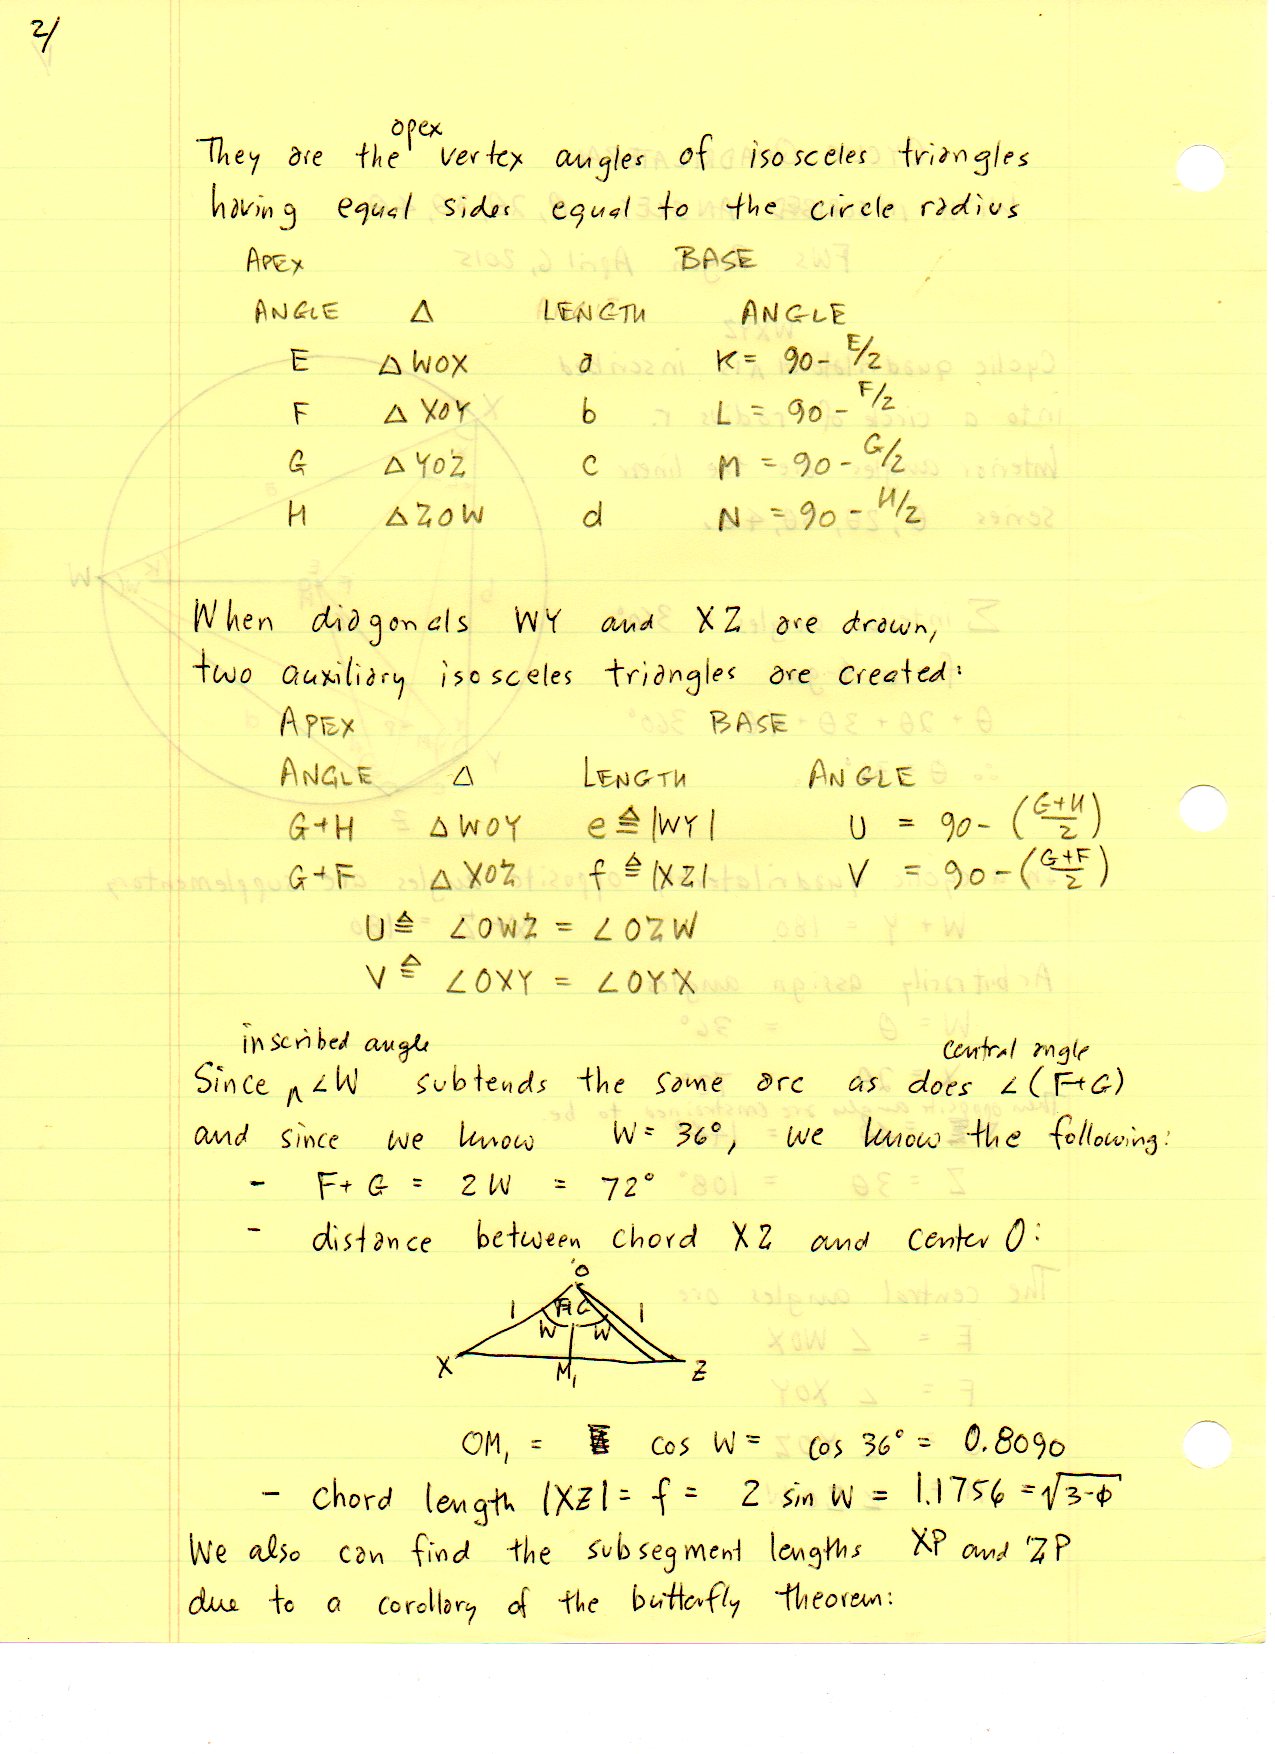 2/
They are the apex vertex angles of isosceles triangles
having equal sides equal to the circle radius
APEX BASE
ANGLE △ LENGTH ANGLE
E △WOX a K = 90 - E/2
F △XOY b L = 90 - F/2
G △YOZ c M = 90 - G/2
H △ZOW d N = 90 - H/2
When diagonals WY and XZ are drawn,
two auxiliary isosceles triangles are created:
APEX BASE
ANGLE △ LENGTH ANGLE
G+H △WOY e ≜ |WY| U = 90 - (G+H/2)
G+F △XOZ f ≜ |XZ| V = 90 - (G+F/2)
U ≜ ∠OWZ = ∠OZW
V ≜ ∠OXY = ∠OYX
Since inscribed angle ∠W subtends the same arc as does central angle ∠(F+G)
and since we know W = 36°, we know the following:
- F + G = 2W = 72°
- distance between chord XZ and center O:
O
1 F G 1
W W
X M₁ Z
OM₁ = cos W = cos 36° = 0.8090
- chord length |XZ| = f = 2 sin W = 1.1756 = √3-Φ
We also can find the subsegment lengths XP and ZP
due to a corollary of the butterfly theorem: